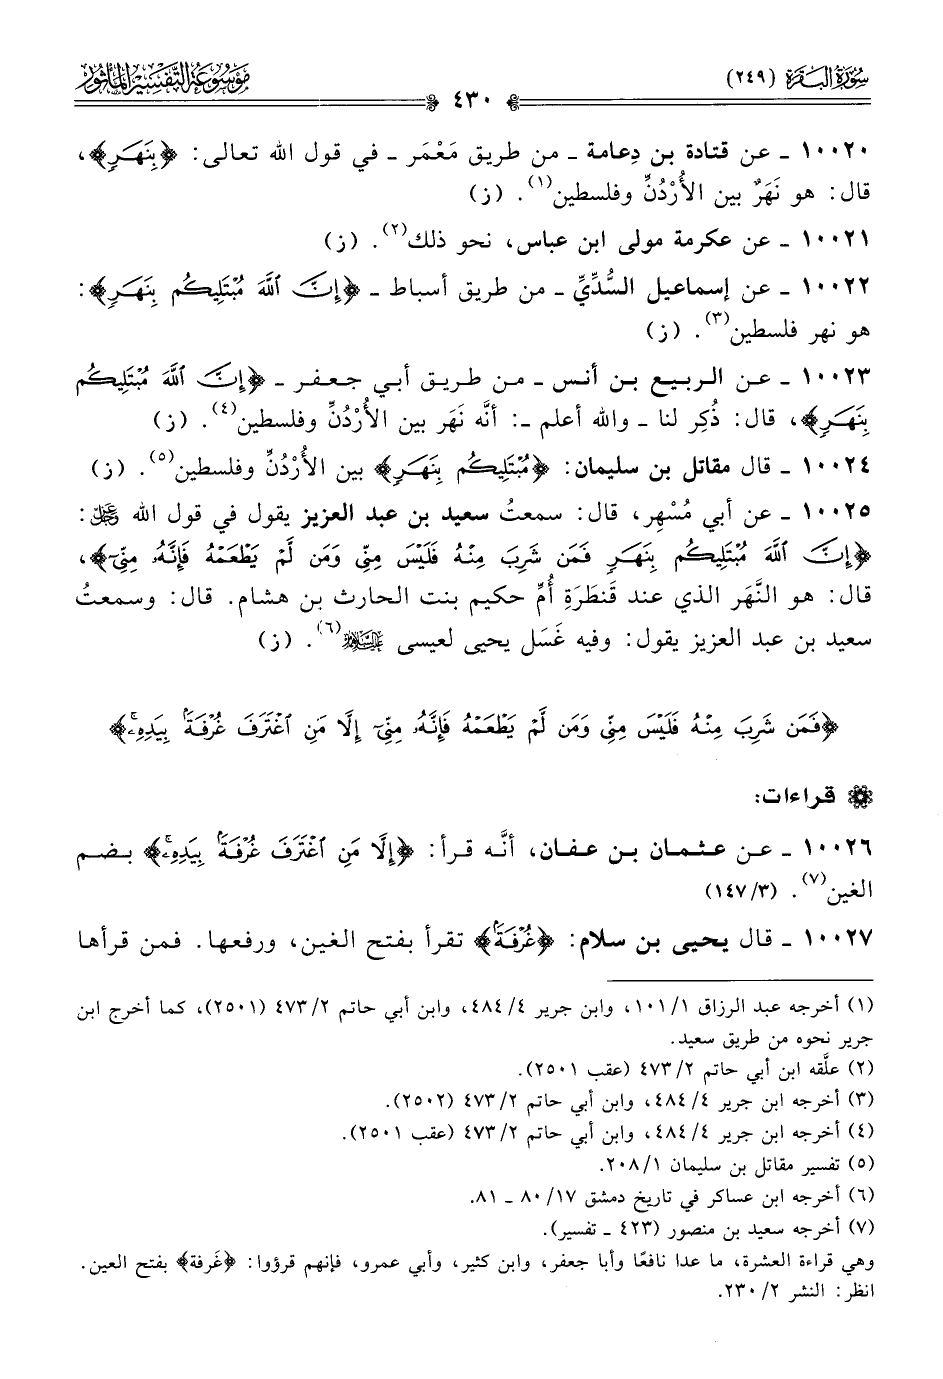 سُورَةُ البَقَرَة (٢٤٩)
مَوْسُوعَة التَّفْسِيرِ المَأثُور
٤٣٠
١٠٠٢٠ ـ عن قتادة بن دِعامة ـ من طريق مَعْمَر ـ في قول الله تعالى: ﴿بِنَهَرٍ﴾،
قال: هو نَهَرٌ بين الأُرْدُنِّ وفلسطين(١). (ز)
١٠٠٢١ ـ عن عكرمة مولى ابن عباس، نحو ذلك(٢). (ز)
١٠٠٢٢ ـ عن إسماعيل السُّدِّيِّ ـ من طريق أسباط ـ ﴿إِنَّ ٱللَّهَ مُبْتَلِيكُم بِنَهَرٍ﴾:
هو نهر فلسطين(٣). (ز)
١٠٠٢٣ ـ عن الربيع بن أنس ـ من طريق أبي جعفر ـ ﴿إِنَّ ٱللَّهَ مُبْتَلِيكُم
بِنَهَرٍ﴾، قال: ذُكِر لنا ـ والله أعلم ـ: أنَّه نَهَر بين الأُرْدُنِّ وفلسطين(٤). (ز)
١٠٠٢٤ ـ قال مقاتل بن سليمان: ﴿مُبْتَلِيكُم بِنَهَرٍ﴾ بين الأُرْدُنِّ وفلسطين(٥). (ز)
١٠٠٢٥ ـ عن أبي مُسْهِر، قال: سمعتُ سعيد بن عبد العزيز يقول في قول الله ﷿:
﴿إِنَّ ٱللَّهَ مُبْتَلِيكُم بِنَهَرٍ فَمَن شَرِبَ مِنْهُ فَلَيْسَ مِنِّى وَمَن لَّمْ يَطْعَمْهُ فَإِنَّهُۥ مِنِّىٓ﴾،
قال: هو النَّهَر الذي عند قَنطَرَةِ أُمِّ حكيم بنت الحارث بن هشام. قال: وسمعتُ
سعيد بن عبد العزيز يقول: وفيه غَسَل يحيى لعيسى عليه السلام(٦). (ز)
﴿فَمَن شَرِبَ مِنْهُ فَلَيْسَ مِنِّى وَمَن لَّمْ يَطْعَمْهُ فَإِنَّهُۥ مِنِّىٓ إِلَّا مَنِ ٱغْتَرَفَ غُرْفَةًۢ بِيَدِهِۦۚ﴾
قراءات:
١٠٠٢٦ ـ عن عثمان بن عفان، أنَّه قرأ: ﴿إِلَّا مَنِ ٱغْتَرَفَ غُرْفَةًۢ بِيَدِهِۦۚ﴾ بضم
الغين(٧). (١٤٧/٣)
١٠٠٢٧ ـ قال يحيى بن سلام: ﴿غُرْفَةًۢ﴾ تقرأ بفتح الغين، ورفعها. فمن قرأها
(١) أخرجه عبد الرزاق ١٠١/١، وابن جرير ٤٨٤/٤، وابن أبي حاتم ٤٧٣/٢ (٢٥٠١)، كما أخرج ابن
جرير نحوه من طريق سعيد.
(٢) علَّقه ابن أبي حاتم ٤٧٣/٢ (عقب ٢٥٠١).
(٣) أخرجه ابن جرير ٤٨٤/٤، وابن أبي حاتم ٤٧٣/٢ (٢٥٠٢).
(٤) أخرجه ابن جرير ٤٨٤/٤، وابن أبي حاتم ٤٧٣/٢ (عقب ٢٥٠١).
(٥) تفسير مقاتل بن سليمان ٢٠٨/١.
(٦) أخرجه ابن عساكر في تاريخ دمشق ٨٠/١٧ ـ ٨١.
(٧) أخرجه سعيد بن منصور (٤٢٣ ـ تفسير).
وهي قراءة العشرة، ما عدا نافعًا وأبا جعفر، وابن كثير، وأبي عمرو، فإنهم قرؤوا: ﴿غَرفة﴾ بفتح العين.
انظر: النشر ٢٣٠/٢.